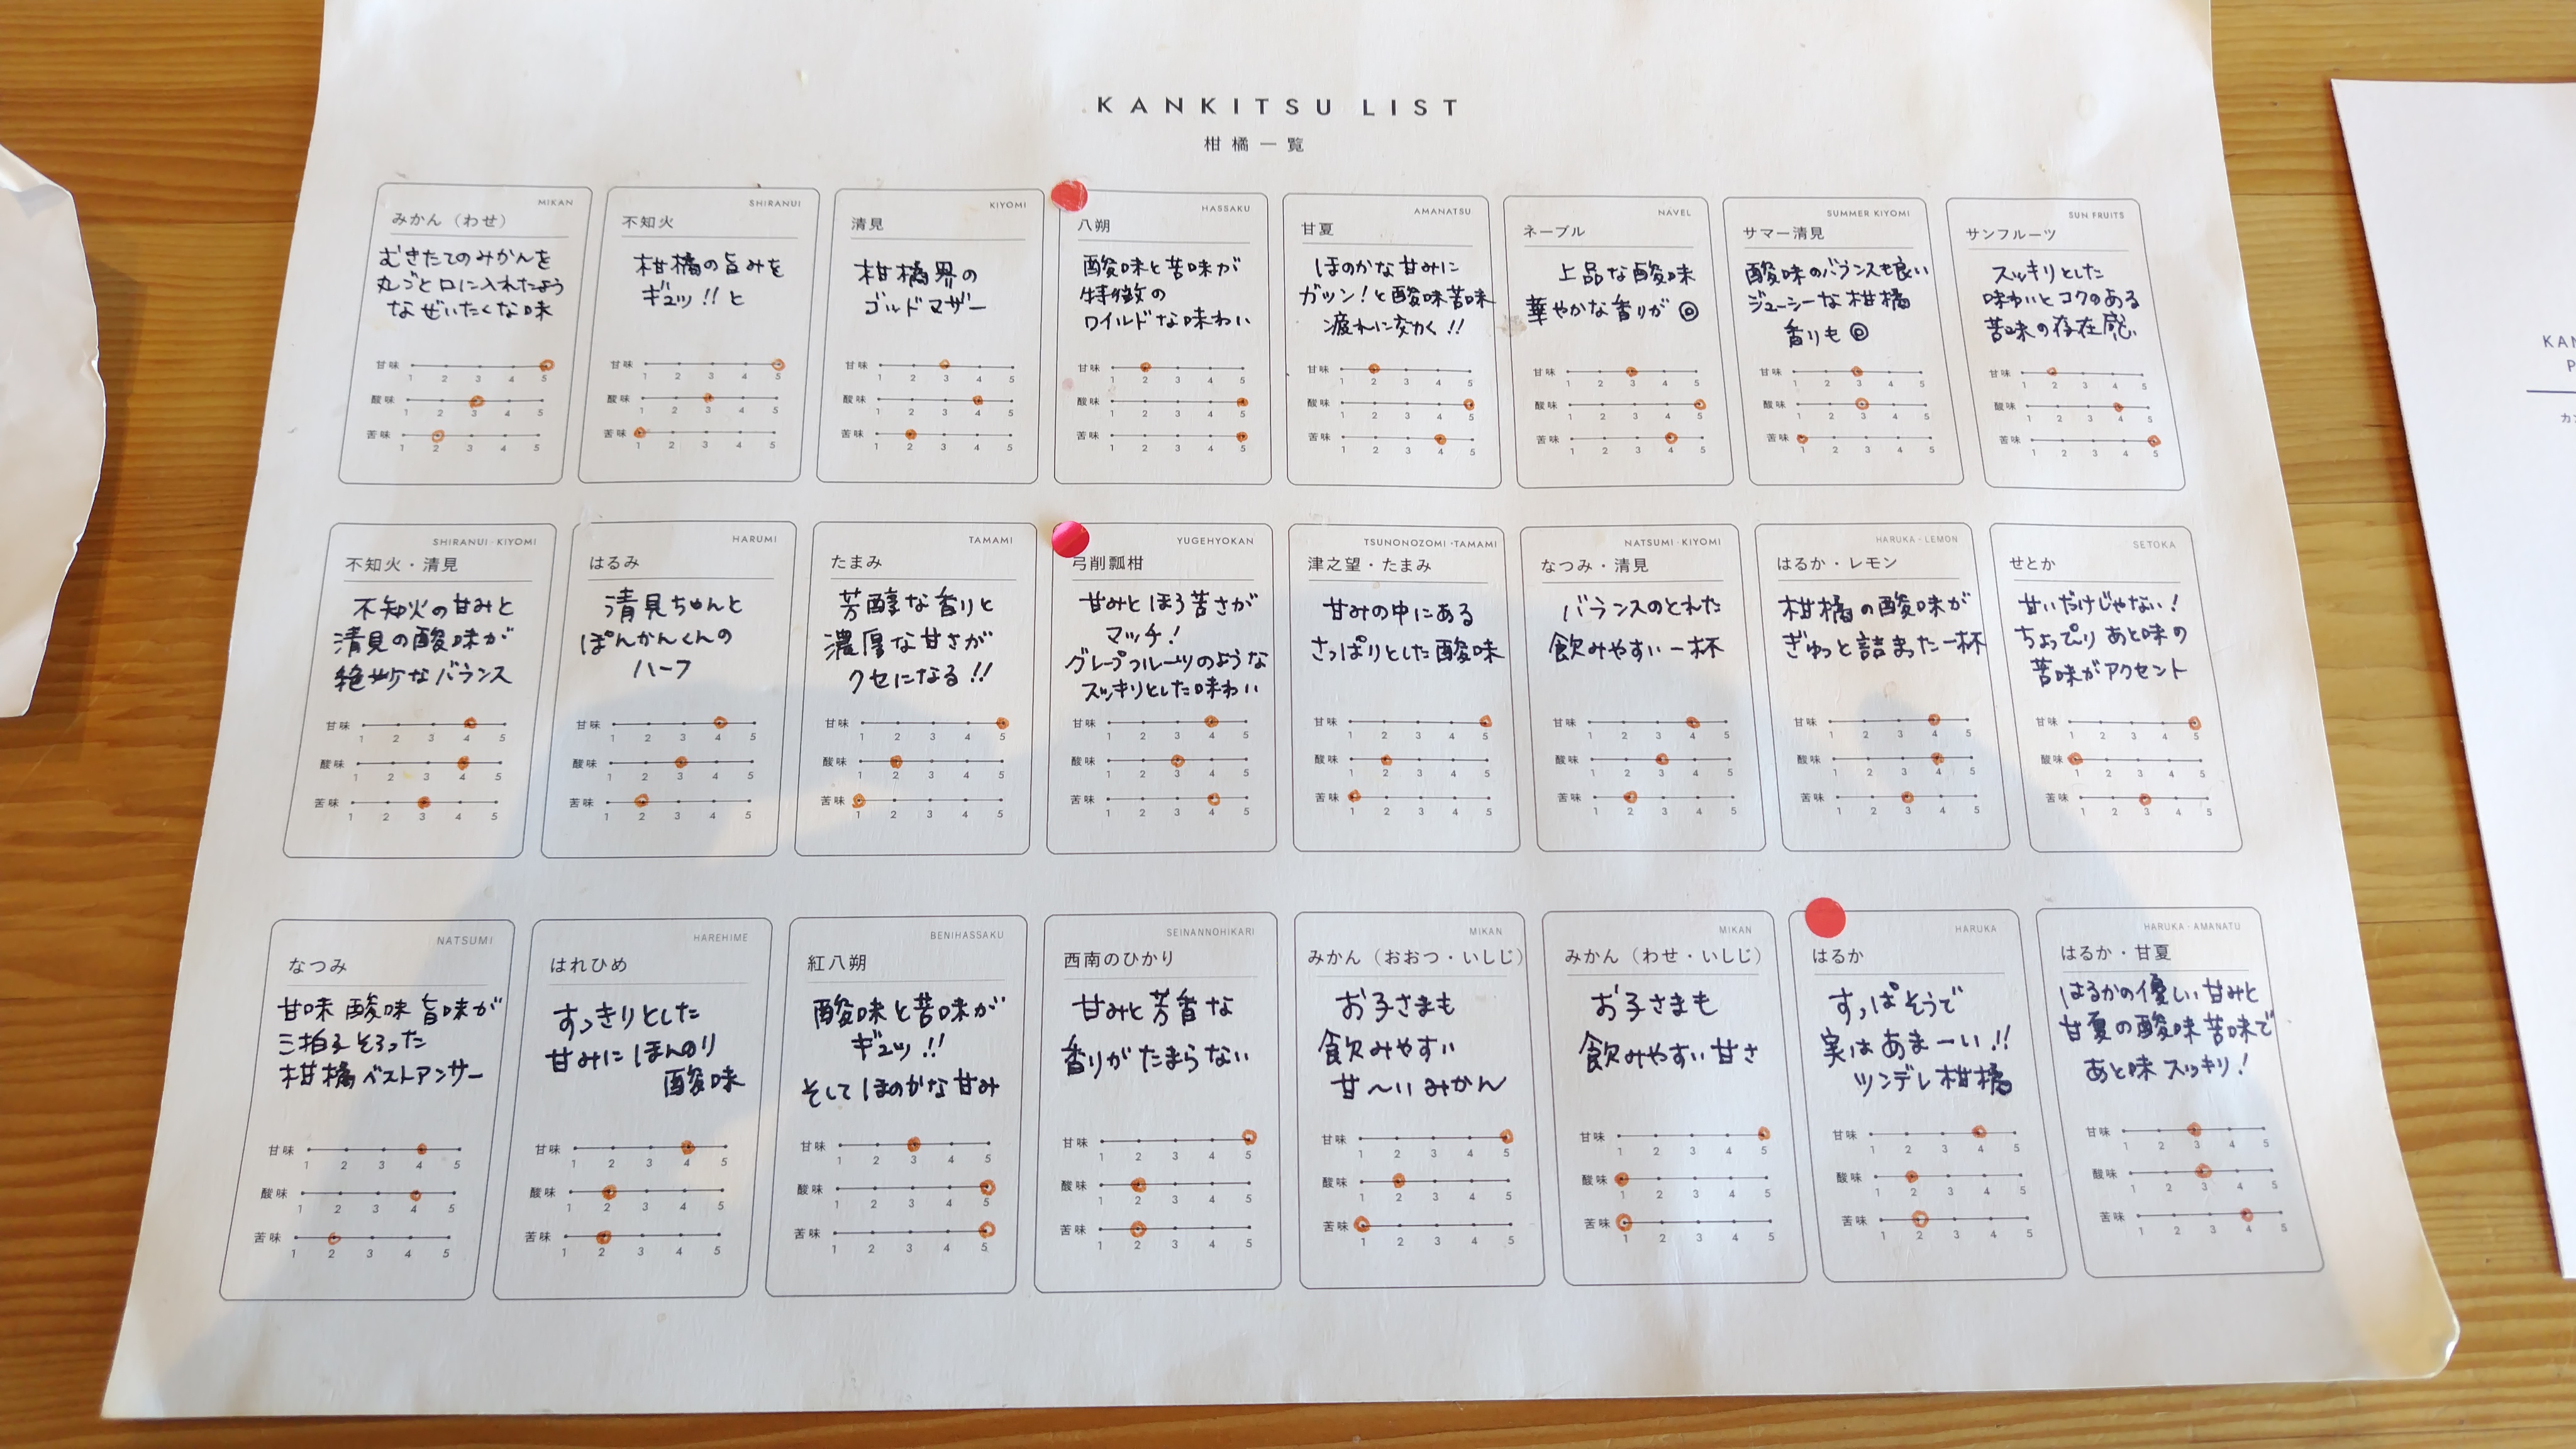 KANKITSU LIST
柑橘一覧
MIKAN
みかん（わせ）
むきたてのみかんを
丸ごと口に入れたよう
なぜいたくな味
甘味
1 2 3 4 5
酸味
1 2 3 4 5
苦味
1 2 3 4 5
SHIRANUI
不知火
柑橘の旨みを
ギュッ!!と
甘味
1 2 3 4 5
酸味
1 2 3 4 5
苦味
1 2 3 4 5
KIYOMI
清見
柑橘界の
ゴルドマザー
甘味
1 2 3 4 5
酸味
1 2 3 4 5
苦味
1 2 3 4 5
HASSAKU
八朔
酸味と苦味が
特徴の
ワイルドな味わい
甘味
1 2 3 4 5
酸味
1 2 3 4 5
苦味
1 2 3 4 5
AMANATSU
甘夏
ほのかな甘みに
ガツン！と酸味苦味
疲れに効く!!
甘味
1 2 3 4 5
酸味
1 2 3 4 5
苦味
1 2 3 4 5
NAVEL
ネーブル
上品な酸味
華やかな香りが◎
甘味
1 2 3 4 5
酸味
1 2 3 4 5
苦味
1 2 3 4 5
SUMMER KIYOMI
サマー清見
酸味のバランスも良い
ジューシーな柑橘
香りも◎
甘味
1 2 3 4 5
酸味
1 2 3 4 5
苦味
1 2 3 4 5
SUN FRUITS
サンフルーツ
スッキリとした
味わいとコクのある
苦味の存在感
甘味
1 2 3 4 5
酸味
1 2 3 4 5
苦味
1 2 3 4 5
SHIRANUI・KIYOMI
不知火・清見
不知火の甘みと
清見の酸味が
絶妙なバランス
甘味
1 2 3 4 5
酸味
1 2 3 4 5
苦味
1 2 3 4 5
HARUMI
はるみ
清見ちゃんと
ぽんかんくんの
ハーフ
甘味
1 2 3 4 5
酸味
1 2 3 4 5
苦味
1 2 3 4 5
TAMAMI
たまみ
芳醇な香りと
濃厚な甘さが
クセになる!!
甘味
1 2 3 4 5
酸味
1 2 3 4 5
苦味
1 2 3 4 5
YUGEHYOKAN
弓削瓢柑
甘みとほろ苦さが
マッチ！
グレープフルーツのような
スッキリとした味わい
甘味
1 2 3 4 5
酸味
1 2 3 4 5
苦味
1 2 3 4 5
TSUNONOZOMI・TAMAMI
津之望・たまみ
甘みの中にある
さっぱりとした酸味
甘味
1 2 3 4 5
酸味
1 2 3 4 5
苦味
1 2 3 4 5
NATSUMI・KIYOMI
なつみ・清見
バランスのとれた
飲みやすい一杯
甘味
1 2 3 4 5
酸味
1 2 3 4 5
苦味
1 2 3 4 5
HARUKA・LEMON
はるか・レモン
柑橘の酸味が
ぎゅっと詰まった一杯
甘味
1 2 3 4 5
酸味
1 2 3 4 5
苦味
1 2 3 4 5
SETOKA
せとか
甘いだけじゃない！
ちょっぴりあと味の
苦味がアクセント
甘味
1 2 3 4 5
酸味
1 2 3 4 5
苦味
1 2 3 4 5
NATSUMI
なつみ
甘味 酸味 旨味が
三拍子そろった
柑橘ベストアンサー
甘味
1 2 3 4 5
酸味
1 2 3 4 5
苦味
1 2 3 4 5
HAREHIME
はれひめ
すっきりとした
甘みにほんのり
酸味
甘味
1 2 3 4 5
酸味
1 2 3 4 5
苦味
1 2 3 4 5
BENIHASSAKU
紅八朔
酸味と苦味が
ギュッ!!
そしてほのかな甘み
甘味
1 2 3 4 5
酸味
1 2 3 4 5
苦味
1 2 3 4 5
SEINANNOHIKARI
西南のひかり
甘みと芳香な
香りがたまらない
甘味
1 2 3 4 5
酸味
1 2 3 4 5
苦味
1 2 3 4 5
MIKAN
みかん（おおつ・いしじ）
お子さまも
飲みやすい
甘〜いみかん
甘味
1 2 3 4 5
酸味
1 2 3 4 5
苦味
1 2 3 4 5
MIKAN
みかん（わせ・いしじ）
お子さまも
飲みやすい甘さ
甘味
1 2 3 4 5
酸味
1 2 3 4 5
苦味
1 2 3 4 5
HARUKA
はるか
すっぱそうで
実はあまーい!!
ツンデレ柑橘
甘味
1 2 3 4 5
酸味
1 2 3 4 5
苦味
1 2 3 4 5
HARUKA・AMANATU
はるか・甘夏
はるかの優しい甘みと
甘夏の酸味苦味で
あと味スッキリ！
甘味
1 2 3 4 5
酸味
1 2 3 4 5
苦味
1 2 3 4 5